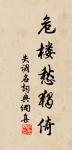 危楼愁独倚
失调名词典调集